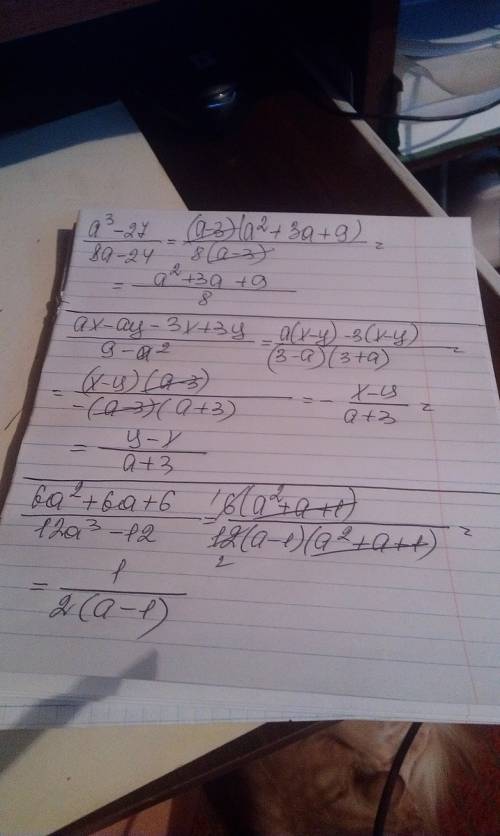 a³-27/8a-24 = (a-3)(a²+3a+9)/8(a-3) =
= a²+3a+9/8
ax-ay-3x+3y/9-a² = a(x-y)-3(x-y)/(3-a)(3+a) =
= (x-y)(a-3)/-(a-3)(a+3) = - x-y/a+3 =
= y-x/a+3
6a²+6a+6/12a³-12 = ¹6(a²+a+1)/12₂(a-1)(a²+a+1) =
= 1/2(a-1)